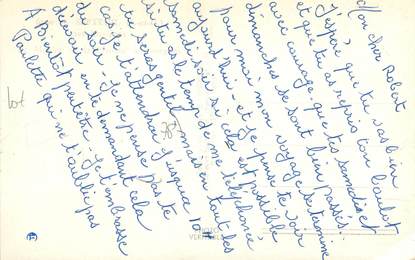 Mon cher Robert
J'espère que tu vas bien
et que tu as repris ton boulot
avec courage que tes samedis et
dimanches se sont bien passés.
pour moi mon voyage se termine
aujourd'hui - et je pense te voir
samedi soir si cela est possible
si tu as le temps de me téléphoner
tu seras gentil mais en tout les
cas je t'attendrai jusque 10h
du soir - je ne pense pas te
decevoir en te demandant cela
A Bientôt peut être - Je t'embrasse
Paulette qui ne t'oublie pas